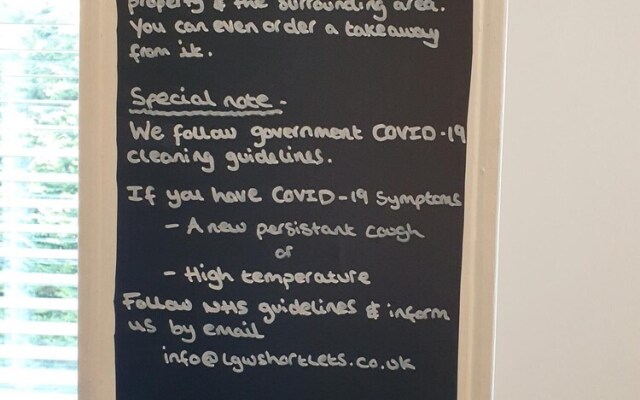 property & the surrounding area.
You can even order a takeaway
from it.
Special note -
We follow government COVID-19
cleaning guidelines.
If you have COVID-19 symptoms
- A new persistant cough
or
- High temperature
Follow NHS guidelines & inform
us by email
info@lgwshortlets.co.uk